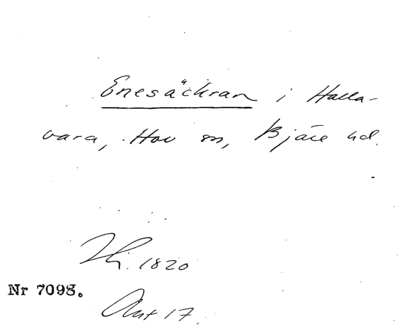 Enesäckran i Halla-
vara, Hov sn, Bjäre hd.
Hi. 1820
Nr 7098.
Ant 17.